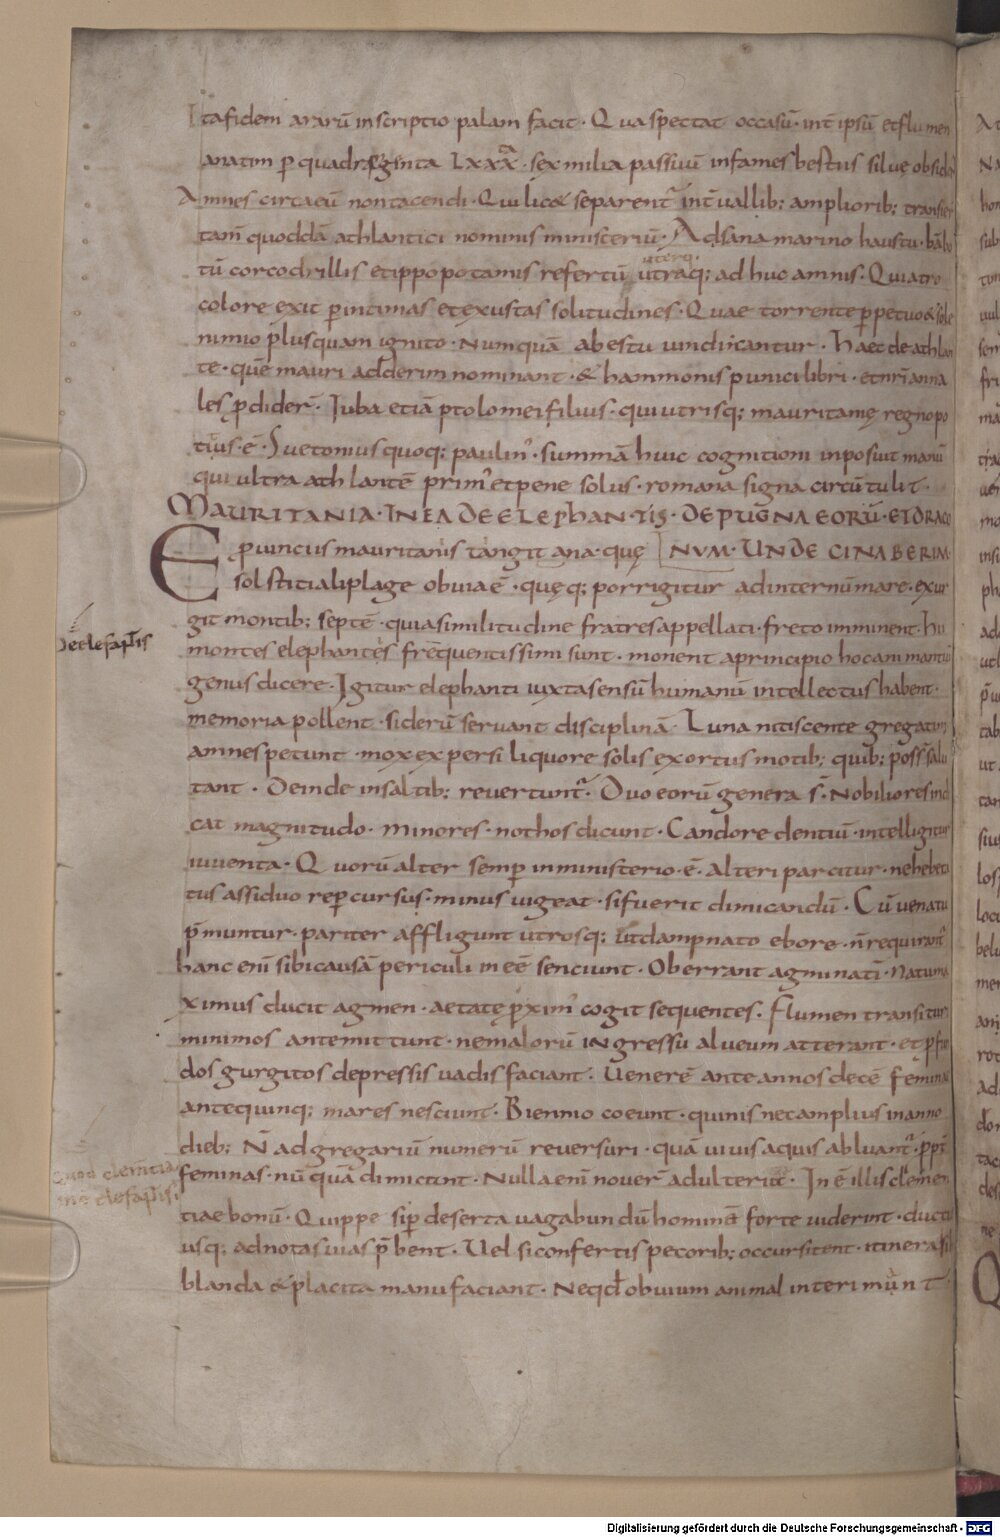 Ita fidem ararū inscriptio palam facit · Qua spectat occasū · int̄ ipsū et flumen
anatim p̱ quadrigginta LXXXX · sex milia passuū infames bestiis siluę obsidēt
Amnes circa eū non tacendi · Qui lic& separent̄ int̄uallib; ampliorib; transier
tam̄ quoddā athlantici nominis ministeriū · Adsana marino haustu · bābo
tū corcodrillis et ippopotamis refertū utraq; adhuc amnis · Qui atro
uterq·
colore exit p̱ intimas et exustas solitudines · Quae torrente p̱petuo & sole
nimio plus quam ignito · Numquā ab estu uindicantur · Haec de athlan
te · quē mauri adderim nominant · & hammonis punici libri · et nr̄i anna
les p̱dider̄ · Iuba etiā ptolomei filius · qui utrisq; mauritanię regno po
titus · ē · Suetonius quoq; paulin᾿ · summā huic cognitioni inposuit manū
qui ultra athlantē prim᾿ et pene solus · romana signa circūtulit ·
MAURITANIA · IN EA DE ELEPhANTIS · DE PUGNA EORŪ · ET DRACO
E p̱uinciis mauritanis tangit ana · quę NVM · UNDE CINABERIM ·
solstitiali plage obuia ē · quęq; porrigitur ad internū mare · exur
git montib; septē · qui a similitudine fratres appellati · freto imminent · hii
De elefantis
montes elephantes frequentissimi sunt · monent a principio hoc animantiū
genus dicere · Igitur elephanti iuxta sensū humanū intellectus habent ·
memoria pollent · siderū seruant disciplinā · Luna nitiscente gregatim
amnes petunt · mox expersi liquore solis exortus motib; quib; poss̄ salu
tant · Deinde in saltib; reuertunt̄ · Duo eorū genera s̄ · Nobiliores indi
cat magnitudo · minores · nothos dicunt · Candore dentiū · intelligitur
iuuenta · Quorū alter semp̱ in ministerio · ē · alteri parcitur · ne hebeta
tus assiduo rep̱cursus · minus uigeat · si fuerit dimicandū · Cū uenatu
p̄muntur · pariter affligunt utrosq; ut dampnato ebore · n̄ requirant̄
hanc eni᷎ sibi causā periculi in eē senciunt · Oberrant agminati᷎ · Natu ma
ximus ducit agmen · aetate p̱xim᾿ cogit sequentes · Flumen transituri
minimos antemittunt · ne maiorū ingressu alueum atterant · et p̱fun
dos gurgitos depressis uadis faciant · Uenerē ante annos decē feminae
ante quinq; mares nesciunt · Biennio coeunt · quinis nec amplius in anno
dieb; N̄ ad gregariū numerū reuersuri · quā uiuis aquis abluant̄ · p̱pt̄
Quod clemtia
feminas · nū quā dimictunt · Nulla eni᷎ nouer̄ adulteria · In ē illis clemen
ine elefantisi
tiae bonū · Quippe si p̱ deserta uagabundū hominē forte uiderint · ductu
usq; ad notas uias p̄bent · Uel si confertis pecorib; occursitent · itinera sibi
blanda & placita manu faciant · Neqd̄ obuium animal interimunt ·
Digitalisierung gefördert durch die Deutsche Forschungsgemeinschaft - DFG